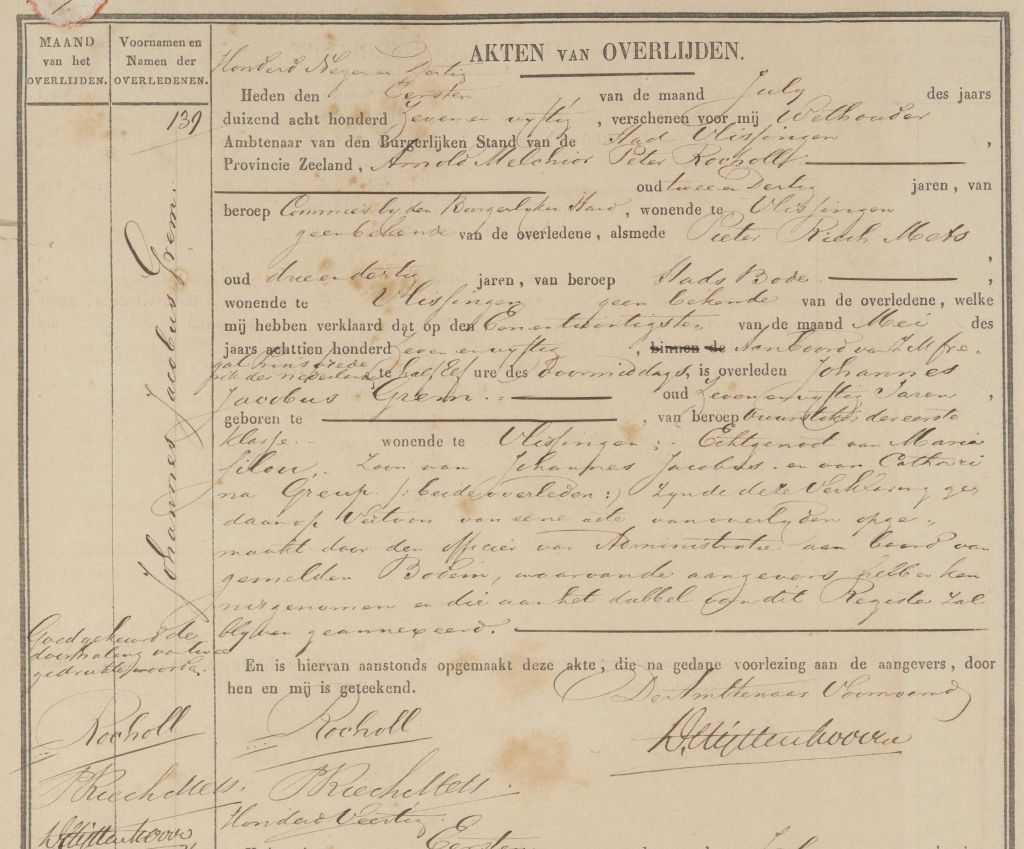 MAAND
van het
OVERLIJDEN.
Voornamen en
Namen der
OVERLEDENEN.
AKTEN VAN OVERLIJDEN.
Honderd Negen en Dertig
139
Johannes Jacobus Grem.
Heden den Eersten van de maand July des jaars
duizend acht honderd Zeven en vyftig, verschenen voor mij Wethouder
Ambtenaar van den Burgerlijken Stand van de Stad Vlissingen,
Provincie Zeeland, Arnold Melchior Peter Rocholl
oud twee en Dertig jaren, van
beroep Commies by den Burgerlyken Stand, wonende te Vlissingen
geen bekende van de overledene, alsmede Pieter Riech Mets,
oud drie en dertig jaren, van beroep Stads Bode,
wonende te Vlissingen geen bekende van de overledene, welke
mij hebben verklaard dat op den Eenentwintigsten van de maand Mei des
jaars achttien honderd Zeven en vyftig, binnen de Aan boord van Z M fre-
gat Prins Frede
rik der Nederlanden, te half Elf ure des voormiddags, is overleden Johannes
Jacobus Grem. oud Zeven en vyftig Jaren,
geboren te , van beroep vuurstoker der eerste
klasse. wonende te Vlissingen; Echtgenoot van Maria
Silou. Zoon van Johannes Jacobus en van Cathari
na Greup. /: beide overleden :/ Zynde deze Verklaring ge,
daan op Vertoon van eene acte van overlyden opge,,
maakt door den officier van Administratie aan boord van
gemelden Bodem, waarvan de aangevers hebben ken
nis genomen en die aan het dubbel van dit Register zal
blyven geannexeerd.
Goedgekeurd de
doorhaling van twee
gedrukte woorden.
En is hiervan aanstonds opgemaakt deze akte, die na gedane voorlezing aan de aangevers, door
hen en mij is geteekend.
De Ambtenaar Voornoemd
Rocholl
Rocholl
PRiechMets.
PRiechMets.
Honderd Veertig.
Eersten